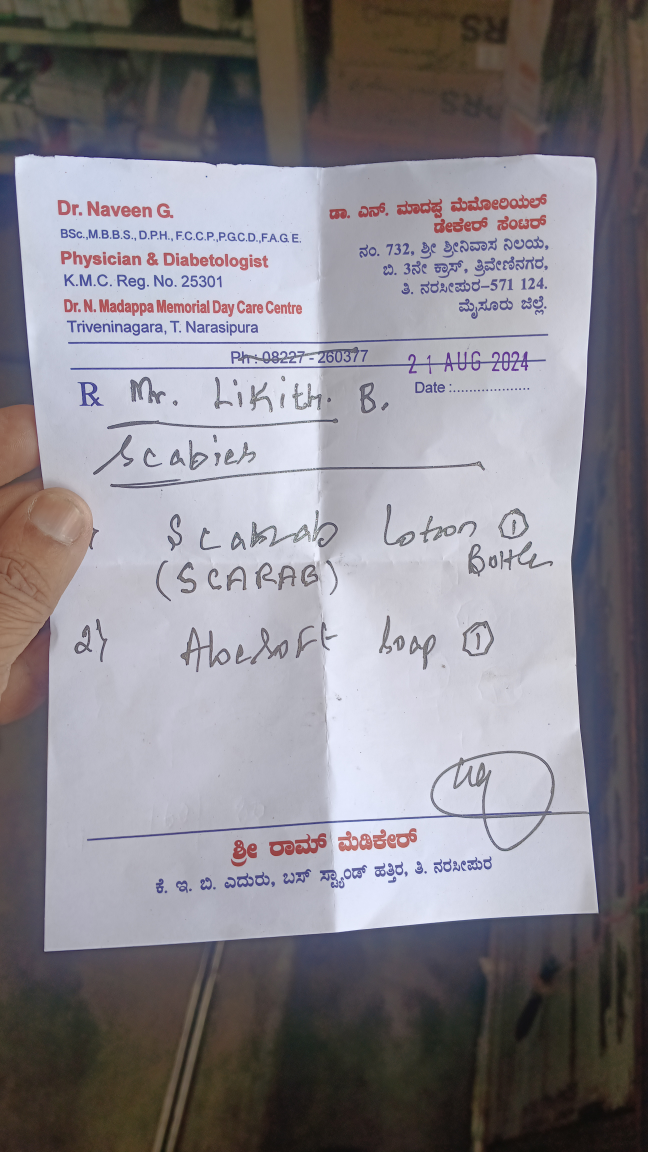 Dr. Naveen G.
BSc.,M.B.B.S., D.P.H., F.C.C.P.,P.G.C.D.,F.A.G.E.
Physician & Diabetologist
K.M.C. Reg. No. 25301
Dr. N. Madappa Memorial Day Care Centre
Triveninagara, T. Narasipura
ಡಾ. ಎನ್. ಮಾದಪ್ಪ ಮೆಮೋರಿಯಲ್
ಡೇಕೇರ್ ಸೆಂಟರ್
ನಂ. 732, ಶ್ರೀ ಶ್ರೀನಿವಾಸ ನಿಲಯ,
ಬಿ. 3ನೇ ಕ್ರಾಸ್, ತ್ರಿವೇಣಿನಗರ,
ತಿ. ನರಸೀಪುರ-571 124.
ಮೈಸೂರು ಜಿಲ್ಲೆ.
Ph : 08227 - 260377
21 AUG 2024
Date :...................
Rx Mr. Likith. B.
Scabies
Scarab Lotion ①
(SCARAB) Bottle
2) Aloesoft Soap ①
ಶ್ರೀ ರಾಮ್ ಮೆಡಿಕೇರ್
ಕೆ. ಇ. ಬಿ. ಎದುರು, ಬಸ್ ಸ್ಟ್ಯಾಂಡ್ ಹತ್ತಿರ, ತಿ. ನರಸೀಪುರ